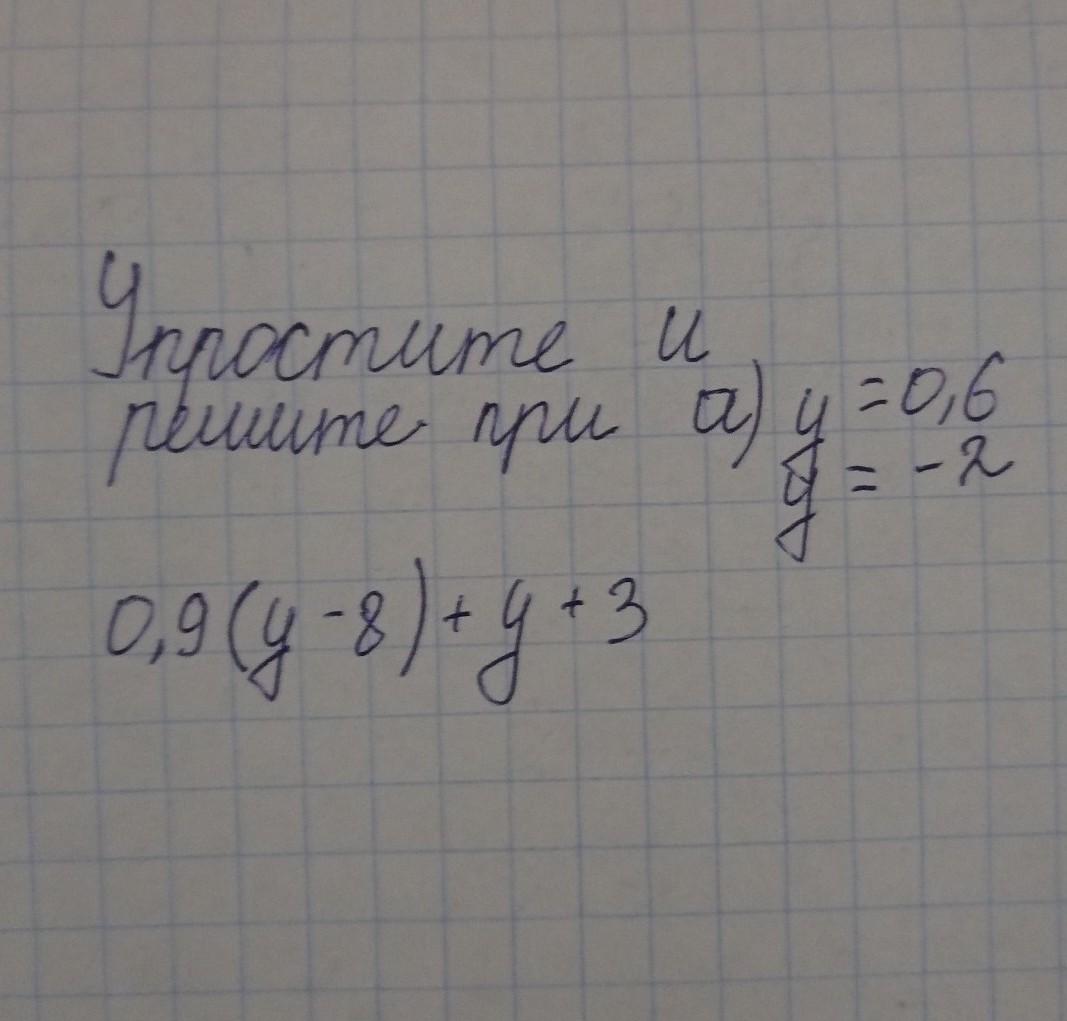 Упростите и
решите при а) y = 0,6
y = - 2
0,9(y - 8) + y + 3